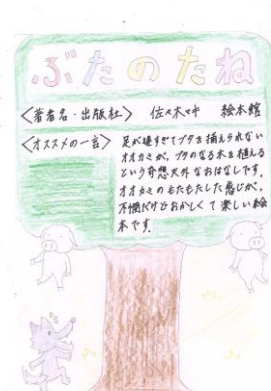 ぶたのたね
〈著者名・出版社〉 佐々木マキ 絵本館
〈オススメの一言〉 足が遅すぎてブタを捕えられない
オオカミが、ブタのなる木を植える
という奇想天外なおはなしです。
オオカミのもたもたした感じが、
不憫だけどおかしくて楽しい絵
本です。